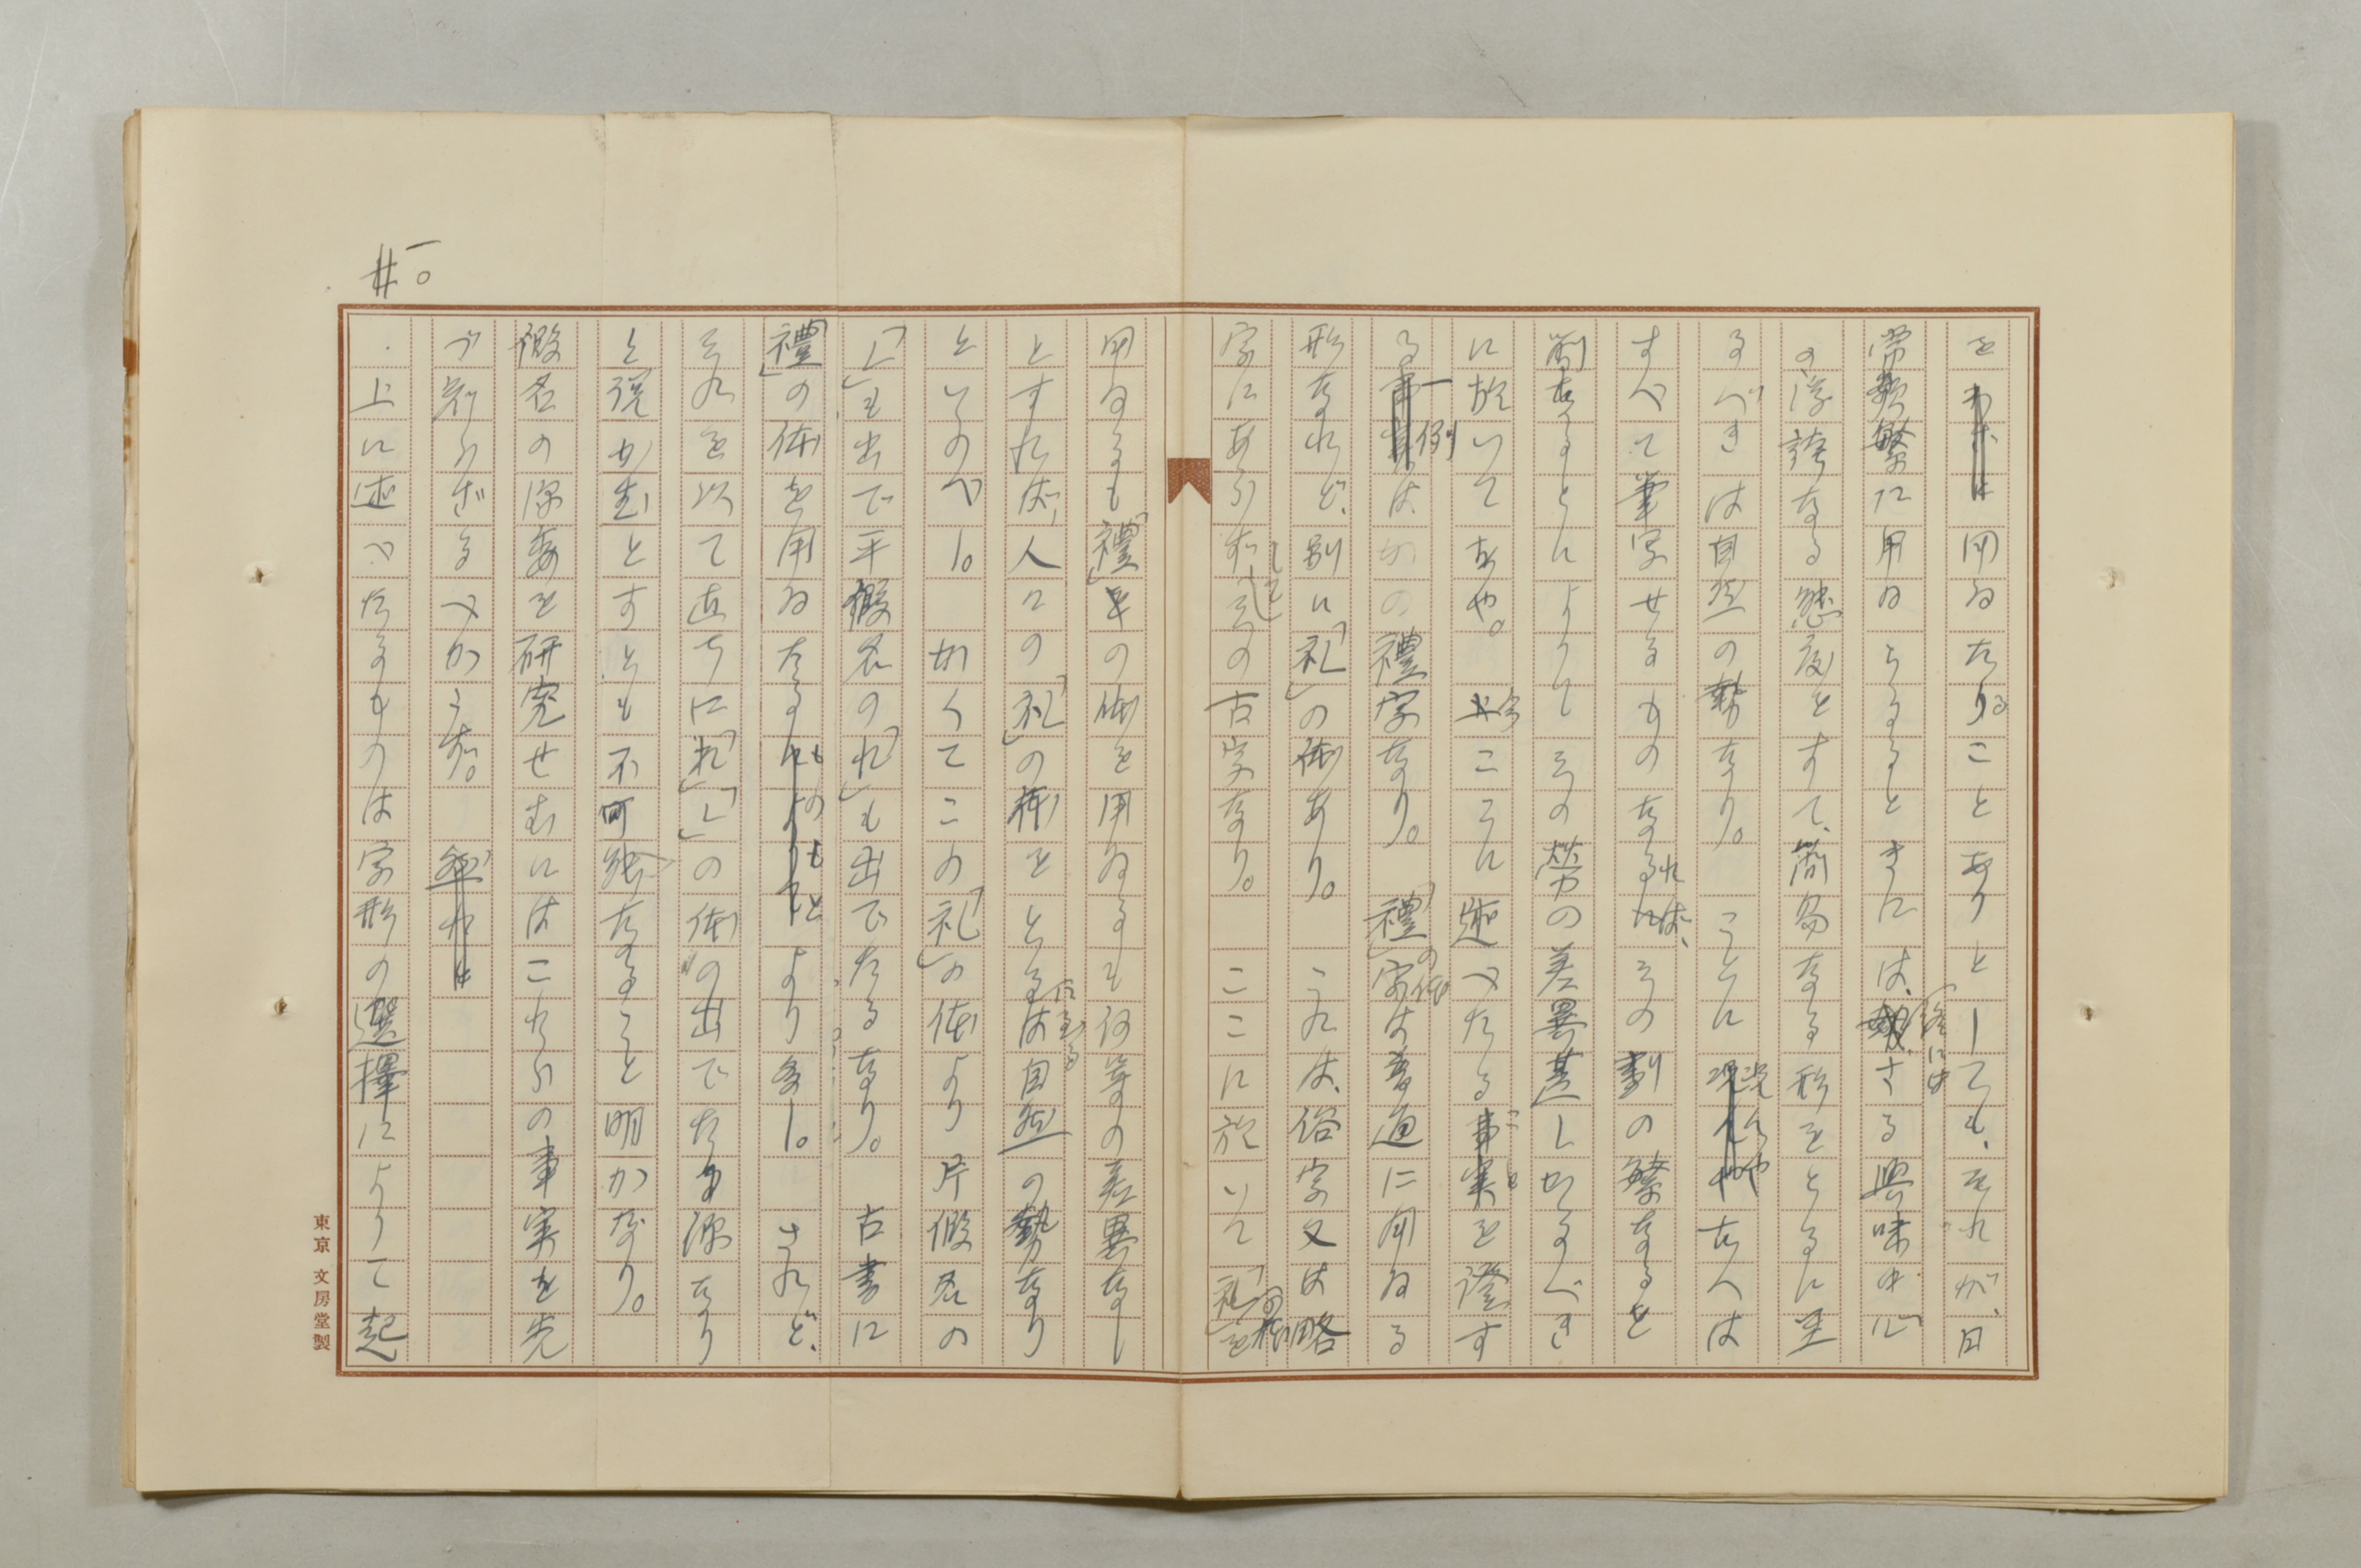 を用ゐたることありとしても、それが、日
常頻繁に用ゐらるるときには、終にはさる興味中心
の浮誇なる態度をすて、簡易なる形をとるに至
るべきは自然の勢なり。ことに況んや古へは
すべて筆写せるものなれば、その劃の繁なると
劃なるとによりて、その労の差異甚しかるべき
に於いてをや。今ここに述べたることを證す
る一例は、かの禮字なり。「禮」の体は普通に用ゐる
形なれど、別に「礼」の体あり。これは、俗字又は略
字にあらずしてその古字なり。ここに於いて「礼」の体を
用ゐるも「禮」の体を用ゐるも何等の差異なし
とすれば、人々の「礼」の体をとるに至るは自然の勢なり
といふべし。かくてこの「礼」の体より片假名の
「レ」も出で平假名の「れ」も出でたるなり。古書に
「禮」の体を用ゐたるものもとより多し。されど、
それを以て直ちに「れ」「レ」の体の出でたる源なり
と説かむとすとも不可能なること明かなり。
假名の源委を研究せむにはこれらの事実を先
づ知らざるべからず。
上に述べたるものは字形の選擇によりて起
一〇
東京 文房堂製